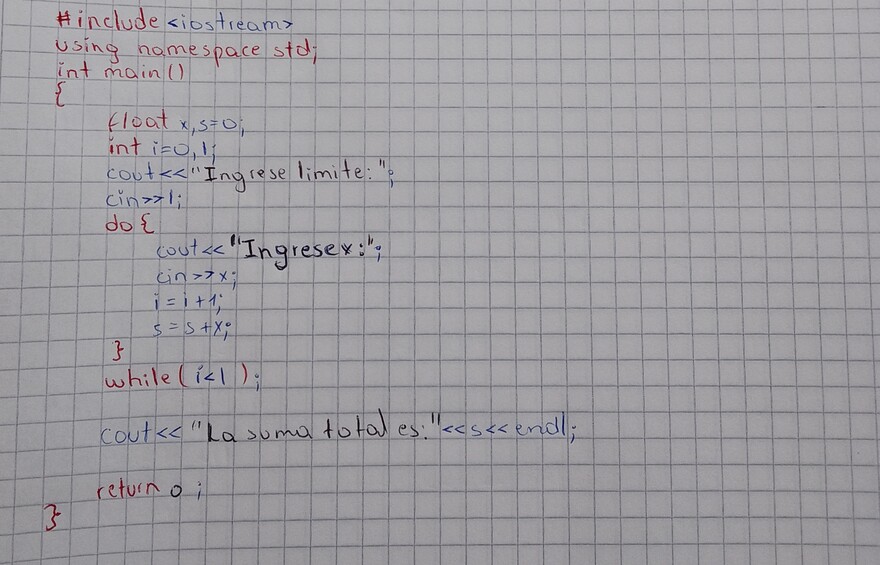 #include <iostream>
using namespace std;
int main()
{
float x,s=0;
int i=0,l;
cout<<"Ingrese limite:";
cin>>l;
do{
cout<<"Ingrese x:";
cin>>x;
i=i+1;
s=s+x;
}
while(i<l);
cout<<"La suma total es:"<<s<<endl;
return 0;
}